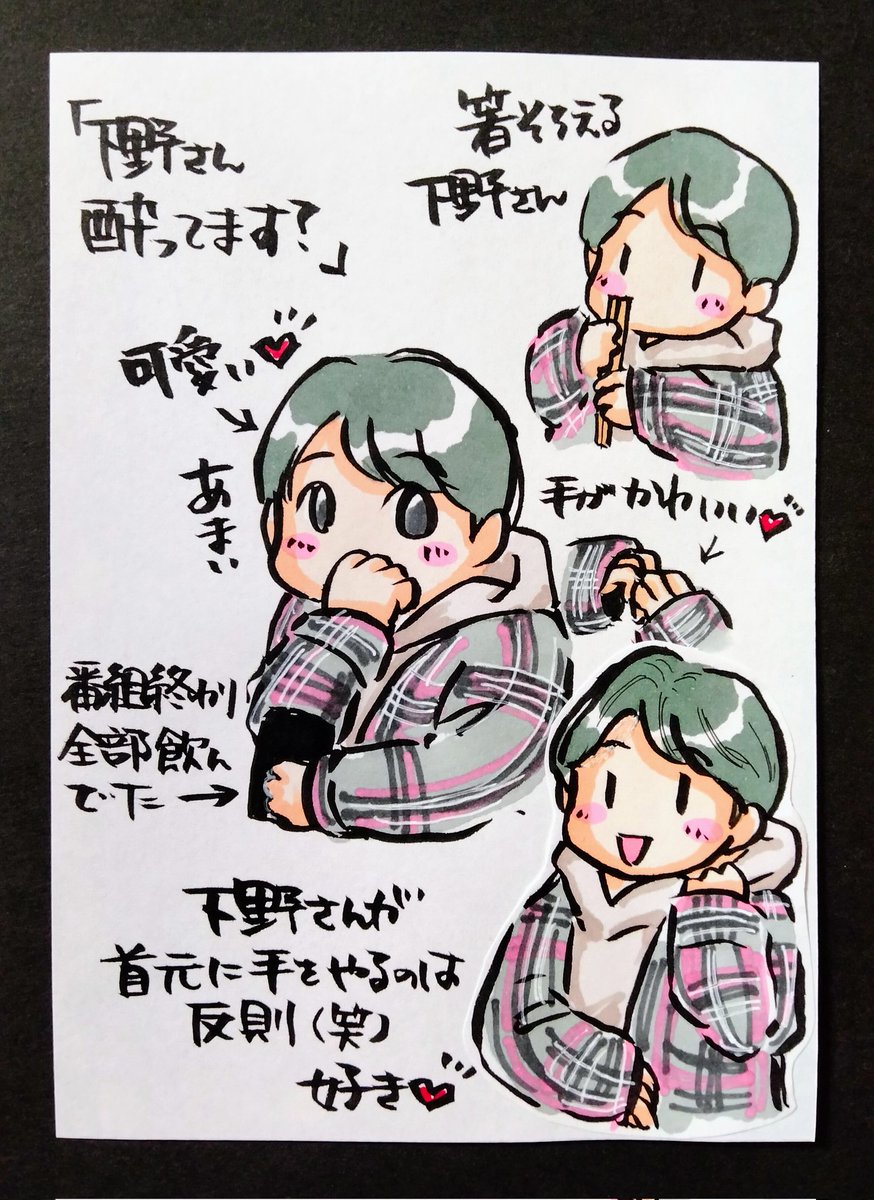 「下野さん
酔ってます?」
箸そろえる
下野さん
可愛い
あまい
手がかわいい
番組終わり
全部飲ん
でた→
下野さんが
首元に手をやるのは
反則(笑)
好き